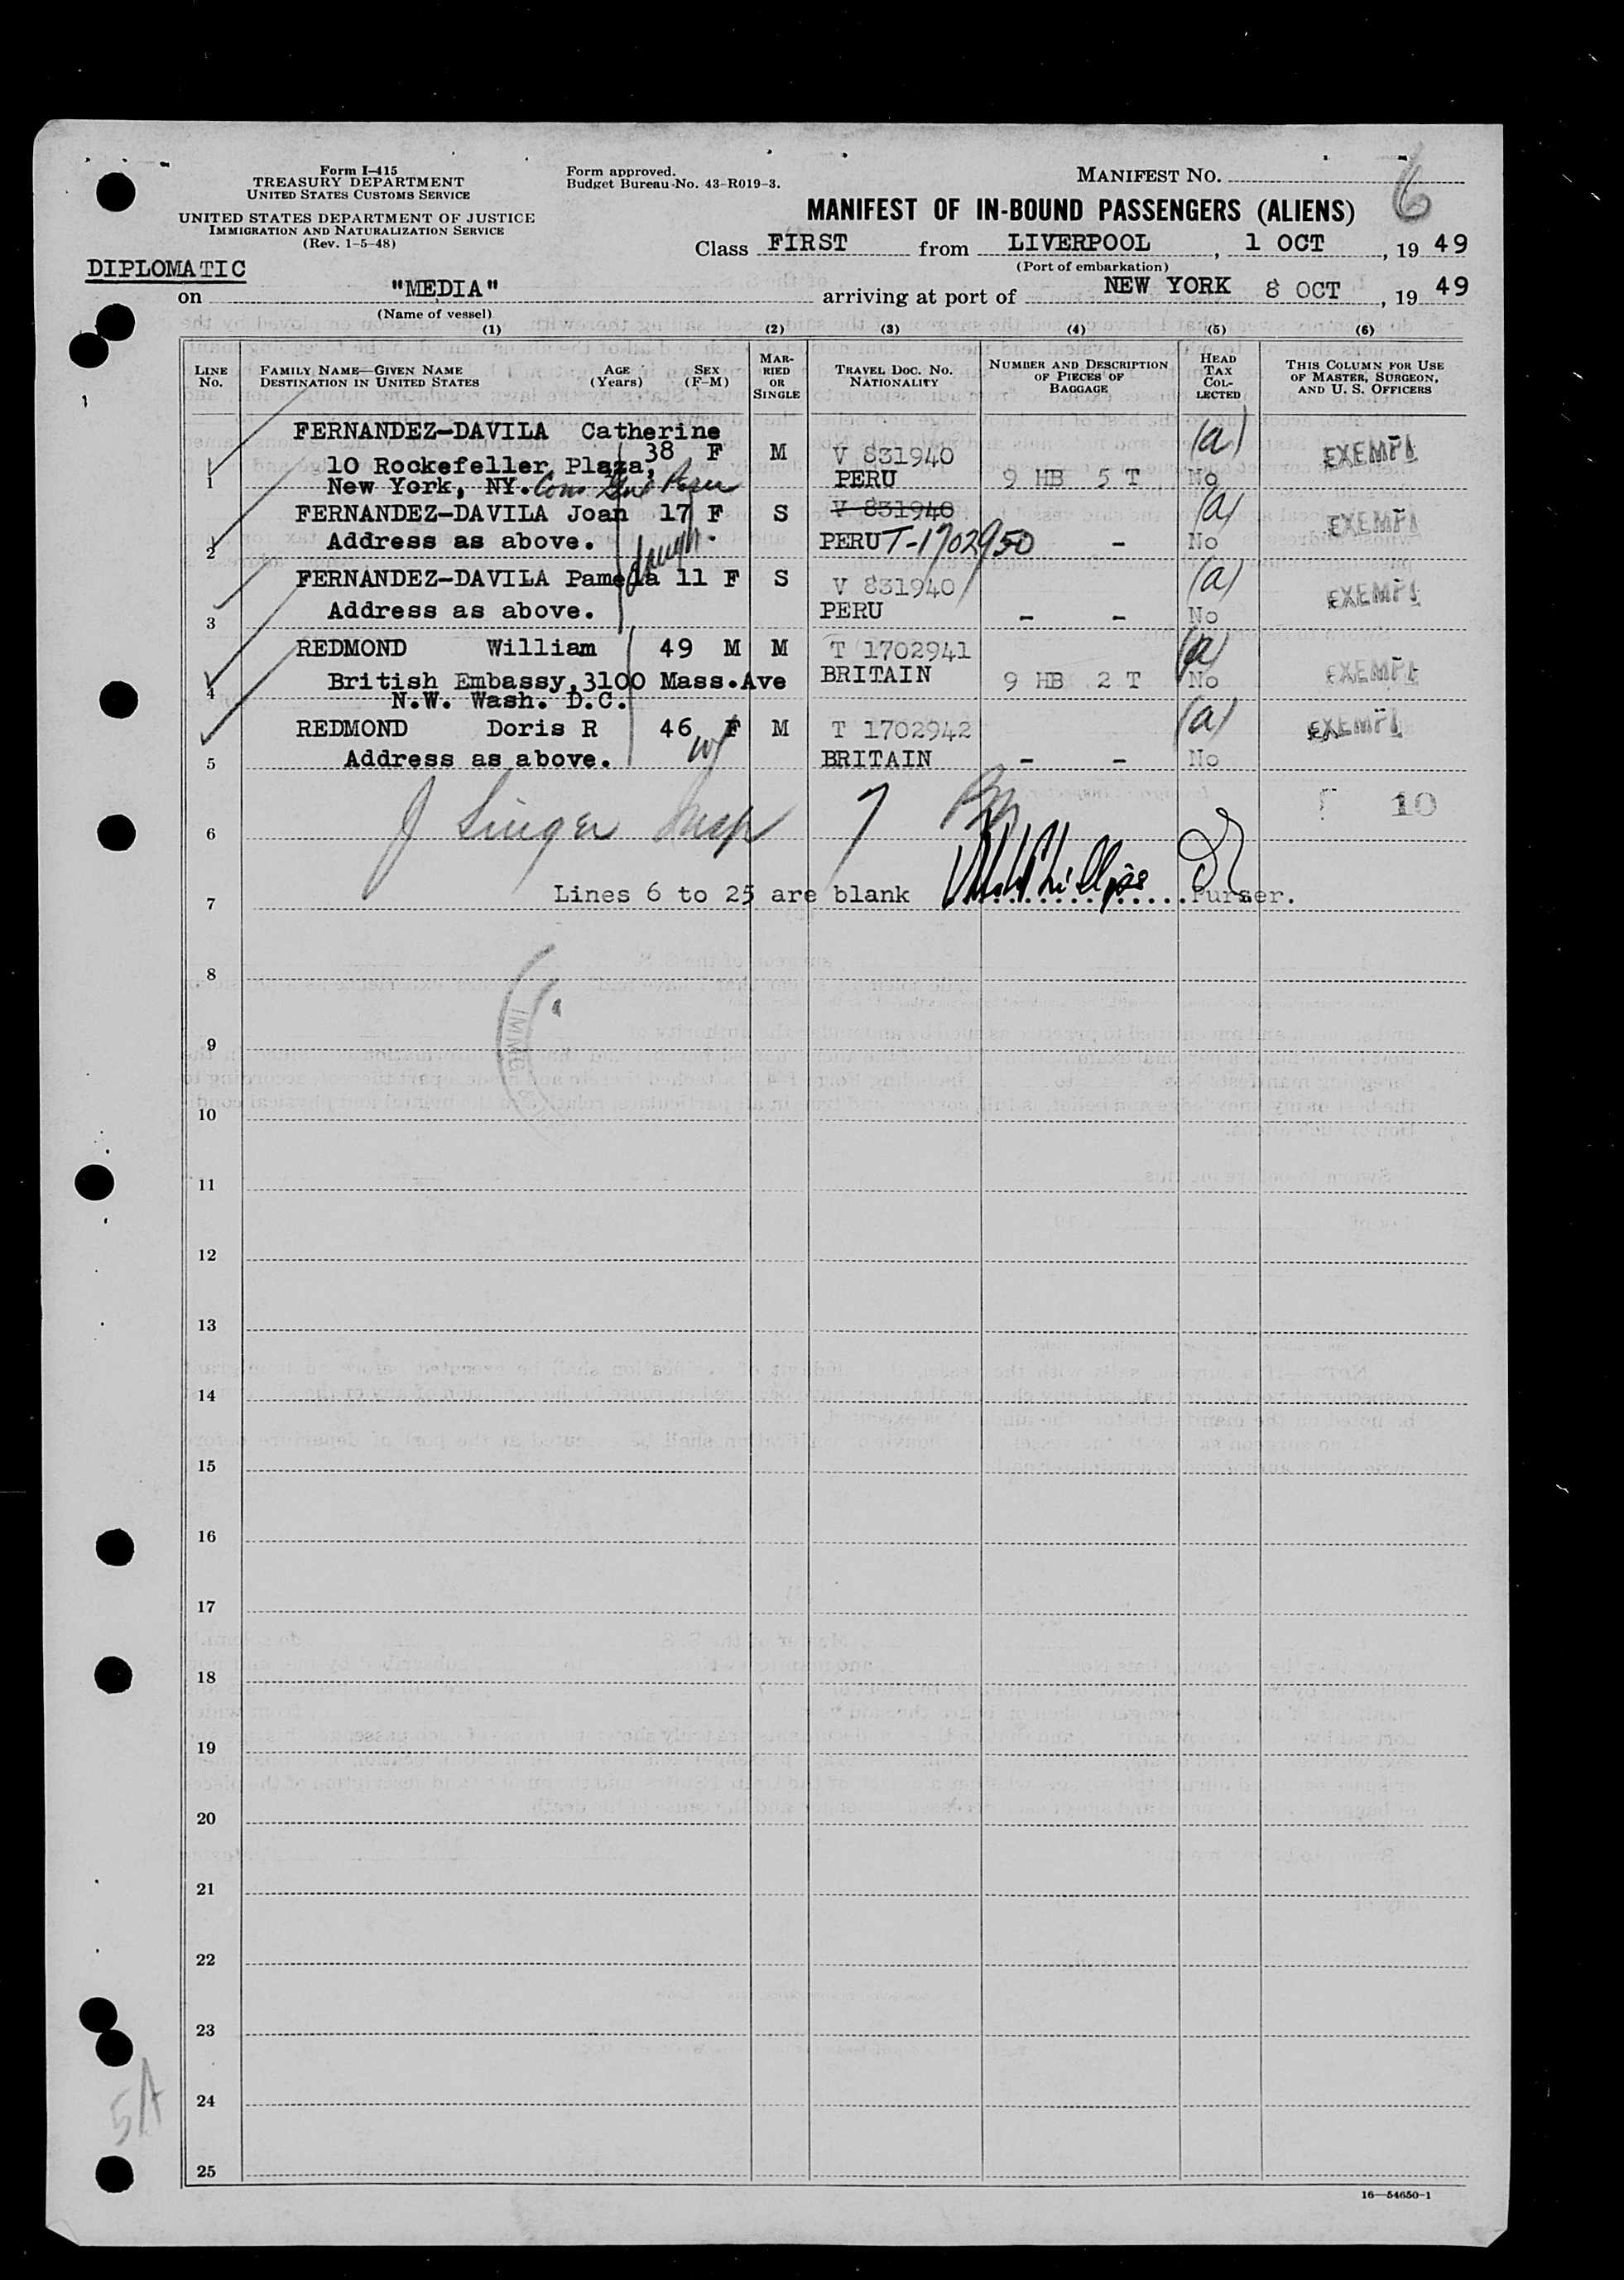 Form I-415
TREASURY DEPARTMENT
UNITED STATES CUSTOMS SERVICE
UNITED STATES DEPARTMENT OF JUSTICE
IMMIGRATION AND NATURALIZATION SERVICE
(Rev. 1-5-48)
Form approved.
Budget Bureau No. 43-R019-3.
MANIFEST NO.
6
MANIFEST OF IN-BOUND PASSENGERS (ALIENS)
Class FIRST from LIVERPOOL, 1 OCT, 19 49
(Port of embarkation)
DIPLOMATIC
on "MEDIA" arriving at port of NEW YORK 8 OCT, 19 49
(Name of vessel)
(1) (2) (3) (4) (5) (6)
LINE NO. FAMILY NAME—GIVEN NAME DESTINATION IN UNITED STATES AGE (Years) SEX (F-M) MARRIED OR SINGLE TRAVEL DOC. NO. NATIONALITY NUMBER AND DESCRIPTION OF PIECES OF BAGGAGE HEAD TAX COLLECTED THIS COLUMN FOR USE OF MASTER, SURGEON, AND U. S. OFFICERS
FERNANDEZ-DAVILA Catherine 38 F M V 831940 (a) EXEMPT
10 Rockefeller Plaza,
1 New York, NY. Cons Gen Peru PERU 9 HB 5 T No
FERNANDEZ-DAVILA Joan 17 F S V 831940 (a) EXEMPT
2 Address as above. daugh. PERU T-1702950 - No
FERNANDEZ-DAVILA Pamela 11 F S V 831940 (a) EXEMPT
3 Address as above. PERU - - No
REDMOND William 49 M M T 1702941 (a)
4 British Embassy, 3100 Mass. Ave BRITAIN 9 HB 2 T No EXEMPT
N.W. Wash. D.C.
REDMOND Doris R 46 F M T 1702942 (a) EXEMPT
5 Address as above. w/ BRITAIN - - No
10
6 J Singer Insp
7 Lines 6 to 25 are blank Purser.
8
IMMIG
9
10
11
12
13
14
15
16
17
18
19
20
21
22
23
24
5A
25
16—54650-1